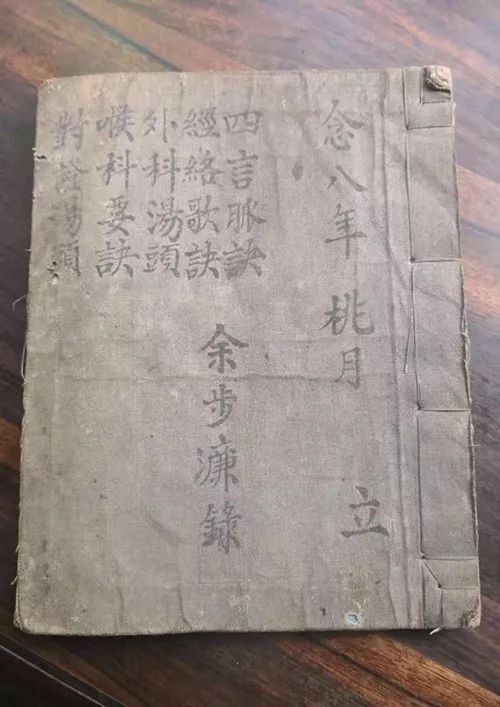 念八年 桃月 立
四言脉訣
經絡歌訣
外科湯頭
喉科要訣
對證湯頭
余步濂錄